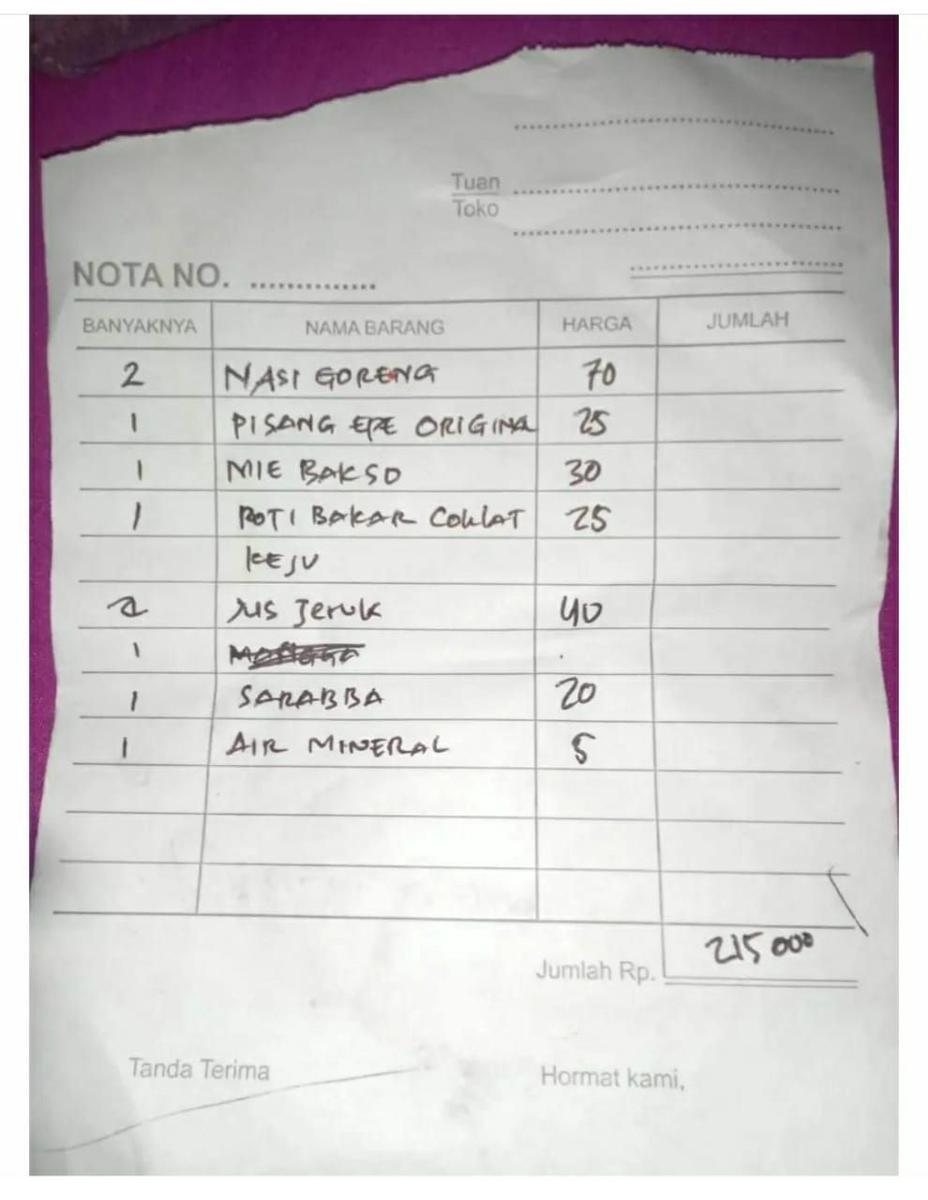 Tuan
Toko
NOTA NO. ..............
BANYAKNYA NAMA BARANG HARGA JUMLAH
2 NASI GORENG 70
1 PISANG EPE ORIGINAL 25
1 MIE BAKSO 30
1 ROTI BAKAR COKLAT 25
KEJU
2 JUS Jeruk 40
1
1 SARABBA 20
1 AIR MINERAL 5
Jumlah Rp. 215 000
Tanda Terima Hormat kami,